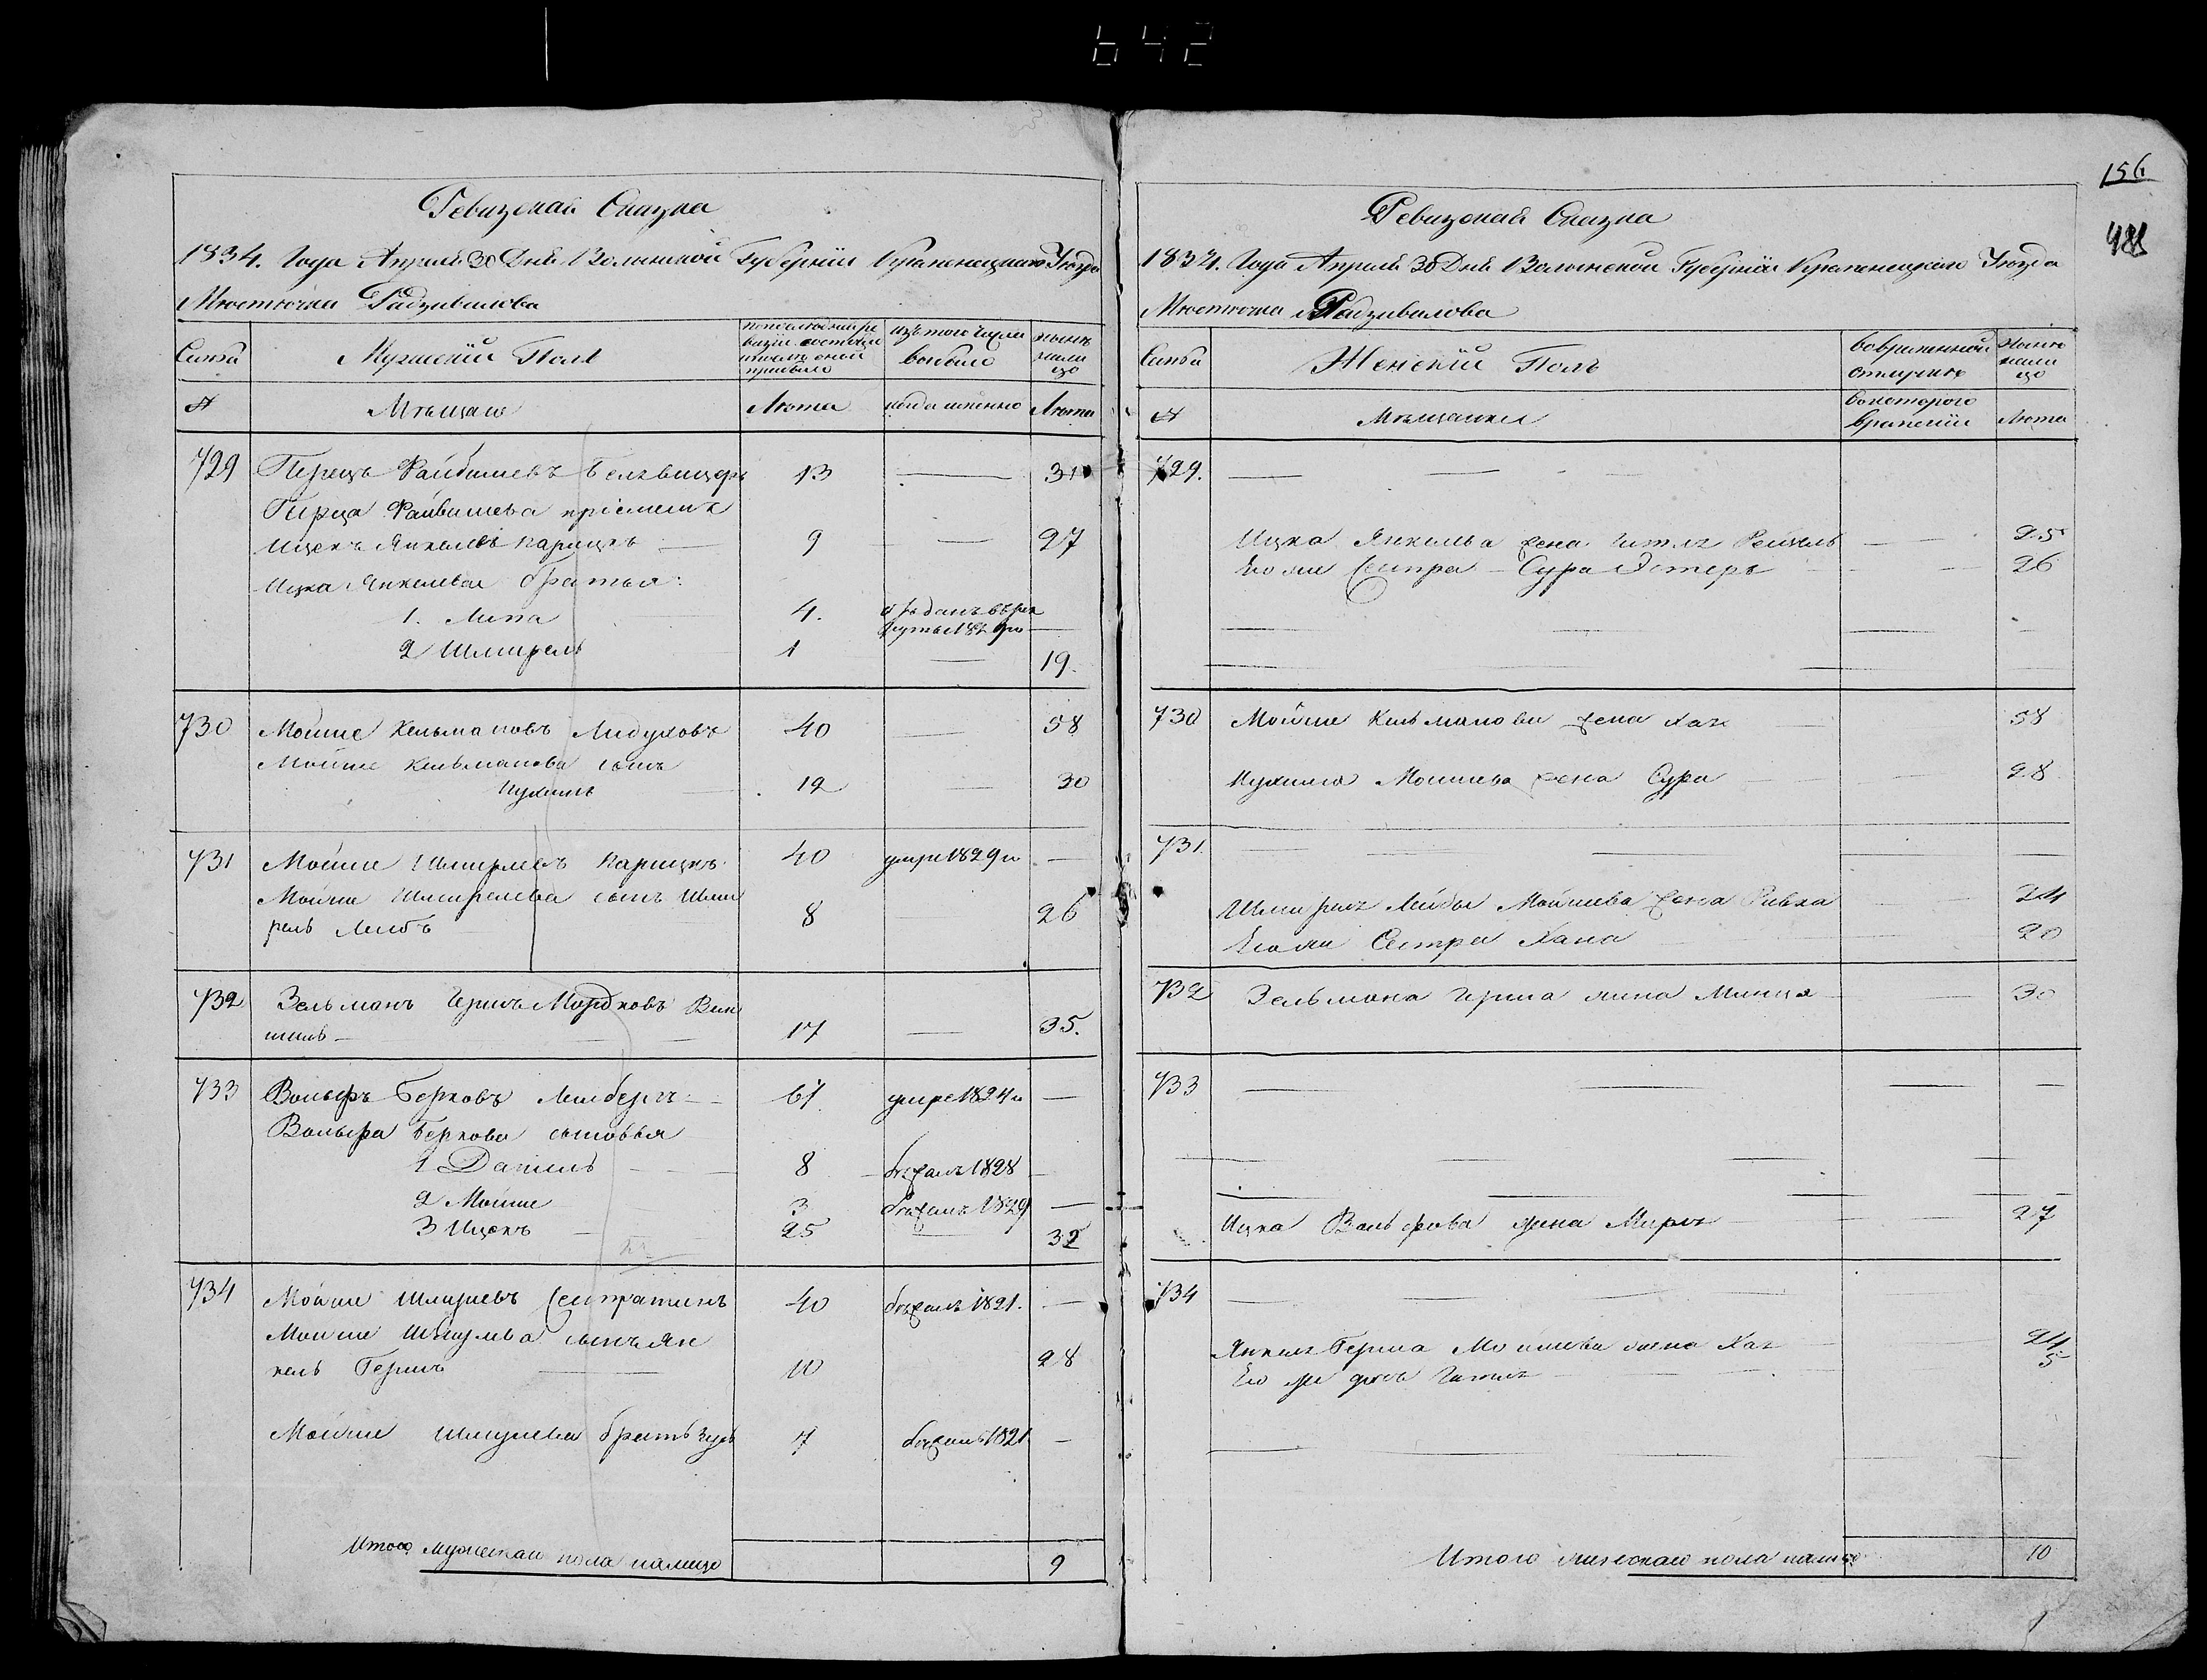 642
156
488
Ревизская Сказка
1834. Года Апреля 30 Дня Волынской Губернiи Кременецкаго Уѣзда
Мѣстечка Радзивилова
Семьи
Мужескiй Полъ
по последней ре
визiи состояло
и послѣ оной
прибыло
изъ того числа
выбыло
нынѣ
нали
цо
№
Мѣщане
Лѣта
когда именно
Лѣта
729 Перецъ Файвишевъ 13 — 31
Перца Файвишева прiемышъ
Ицекъ Янкелевъ Парицкъ — 9 — — 27
Ицка Янкелева братья:
1. Липа 4. отданъ въ рек
руты 1829 го —
2 Шмирель 1 — 19.
730 Мойше Кельмановъ Лидуховъ 40 — 58
Мойше Кельманова сынъ
Нухимъ 12 — 30
731 Мойше Шмирлевъ Парицкъ 40 умре 1829 го —
Мойше Шмирелева сынъ Шми
рель Лейбъ 8 26
732 Зельманъ Гершъ Мордковъ Вин
17 — 35.
733 Вольфъ Берковъ Лемберг 61 умре 1824 го —
Вольфа Беркова сыновья
1 Данiель 8 бѣжалъ 1828 —
2 Мойше 3 бѣжалъ 1829 —
3 Ицекъ 25 — 32
734 Мойше Шмулевъ 40 бѣжалъ 1821. —
Мойше Шмулева сынъ Ян
кель Гершъ 10 28
Мойше Шмулева братъ 7 бѣжалъ 1821 —
Итого мужескаго пола налицо 9
Ревизская Сказка
1834. Года Апреля 30 Дня Волынской Губернiи Кременецкаго Уѣзда
Мѣстечка Радзивилова
Семьи
Женскiй Полъ
во временной
отлучкѣ
Нынѣ
нали
цо
№
Мѣщанки
съ котораго
времени
Лѣта
729. — — —
Ицка Янкельва жена Гитля Рейзель — — 25
Его же Сестра — Сура Эстеръ — — 26
730 Мойше Кельманова жена Хая 58
Нухима Мошкова жена Сура — 28
731. — — —
Шмиреля Лейбы Мойшева жена Ривка — 24
Его же Сестра Хана 20
732 Зельмана Герша жена Минця — 30
733 — — — —
Ицка Вольфова жена Миря — 27
734 — — —
Янкеля Герша Мойшева жена Хая 24
Его же дочь Гитля 5
Итого женскаго пола налицо 10